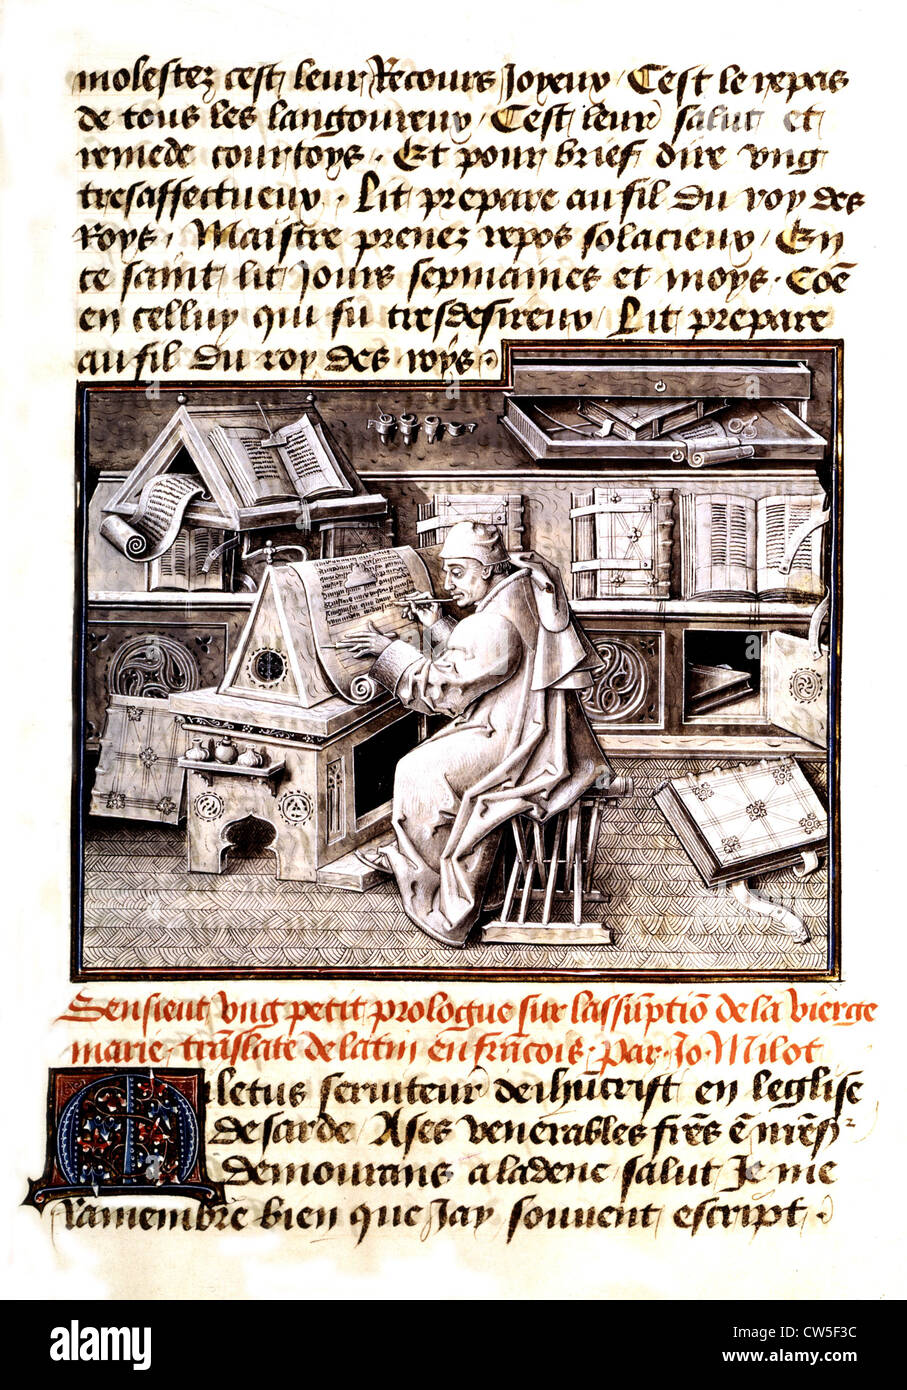 molestez cest leur Recours Joyeux / Cest le repas
de tous les langoureux / Cest leur salut et
remede courtoys . Et pour brief dire ung
tresaffectueux . Lit prepare au fil du roy des
Roys / Maistre prenez repos solacieux / En
ce saint lit Jours sepmaines et moys . Coe
en celluy qui fu tresdesireux / Lit prepare
au fil du roy des roys .
Sensieut ung petit prologue sur lassuptio de la vierge
marie . traslate de latin en fracois . par . Jo . Milot
Miletus seruiteur de ihucrist en leglise
de sarde / A ses venerables fres
demourans a ladence salut / Je me
Ramembre bien que Jay souvent escript .
alamy
Image ID: CW5F3C
www.alamy.com